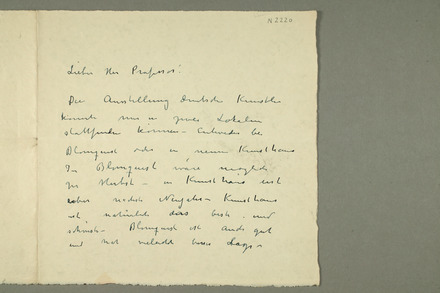 N 2224
Lieber Herr Professor!
Die Ausstellung deutscher Künstler
könnte nur in zwei Lokalen
stattfinden können – Entweder bei
Blomquist oder im neuen Kunsthaus
In Blomquist wäre möglich
im Herbst – im Kunsthaus erst
nach Neujahr – Kunsthaus
ist natürlich das beste und
schönste – Blomquist ist auch gut
und hat vielleicht bessere Lage –